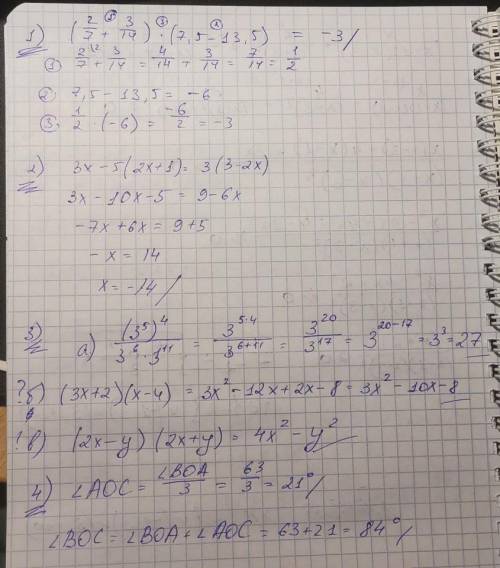 1) (2/7 + 3/14) · (7,5 − 13,5) = −3/
① 2/7 \2 + 3/14 = 4/14 + 3/14 = 7/14 = 1/2
② 7,5 − 13,5 = −6
③ 1/2 · (−6) = −6/2 = −3
2) 3x − 5(2x+1) = 3(3−2x)
3x − 10x − 5 = 9 − 6x
−7x + 6x = 9 + 5
−x = 14
x = −14/
3) а) (3⁵)⁴/(3⁶ · 3¹¹) = 3⁵·⁴/3⁶⁺¹¹ = 3²⁰/3¹⁷ = 3²⁰⁻¹⁷ = 3³ = 27
? б) (3x+2)(x−4) = 3x² − 12x + 2x − 8 = 3x² − 10x − 8
! в) (2x−y)(2x+y) = 4x² − y²
4) ∠AOC = ∠BOA/3 = 63/3 = 21°/
∠BOC = ∠BOA + ∠AOC = 63 + 21 = 84°/